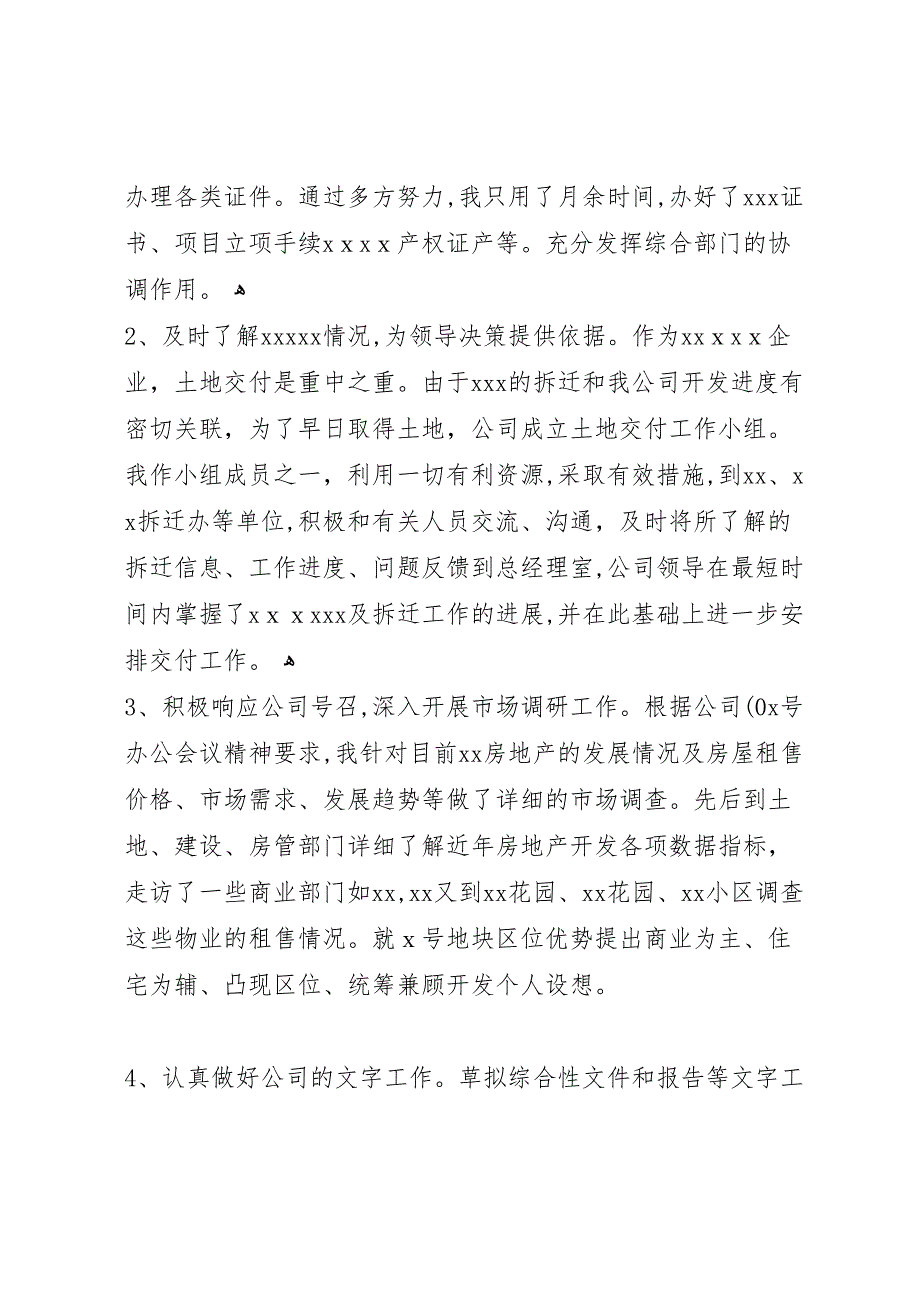 办理各类证件。通过多方努力,我只用了月余时间,办好了xxx证
书、项目立项手续xｘｘｘ产权证产等。充分发挥综合部门的协
调作用。 ﻫ
2、及时了解xxxxx情况,为领导决策提供依据。作为xxｘｘｘ企
业，土地交付是重中之重。由于xxx的拆迁和我公司开发进度有
密切关联，为了早日取得土地，公司成立土地交付工作小组。
我作小组成员之一，利用一切有利资源,采取有效措施,到xx、x
x拆迁办等单位,积极和有关人员交流、沟通，及时将所了解的
拆迁信息、工作进度、问题反馈到总经理室,公司领导在最短时
间内掌握了xｘｘxxx及拆迁工作的进展,并在此基础上进一步安
排交付工作。 ﻫ
3、积极响应公司号召,深入开展市场调研工作。根据公司(0x号
办公会议精神要求,我针对目前xx房地产的发展情况及房屋租售
价格、市场需求、发展趋势等做了详细的市场调查。先后到土
地、建设、房管部门详细了解近年房地产开发各项数据指标，
走访了一些商业部门如xx,xx又到xx花园、xx花园、xx小区调查
这些物业的租售情况。就ｘ号地块区位优势提出商业为主、住
宅为辅、凸现区位、统筹兼顾开发个人设想。
4、认真做好公司的文字工作。草拟综合性文件和报告等文字工